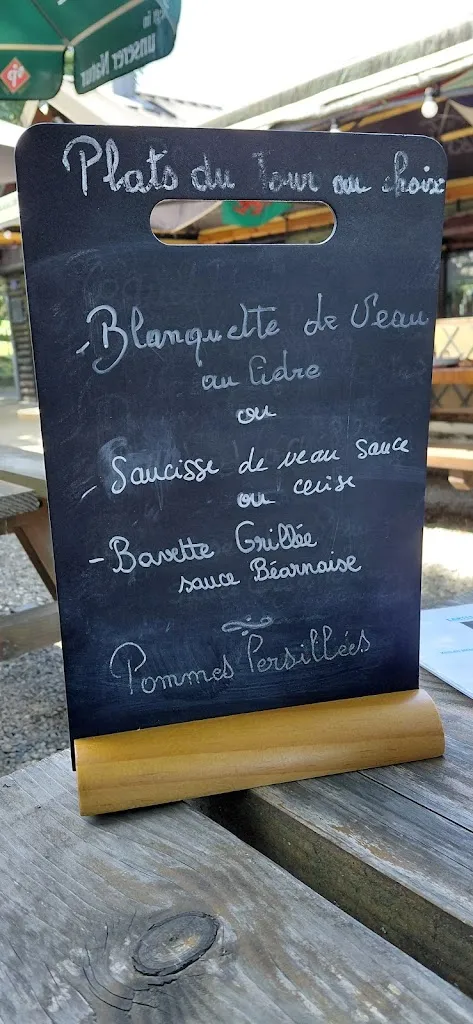 unserer Natur
Plats du Jour au choix
- Blanquette de Veau
au Cidre
ou
- Saucisse de veau sauce
ou cerise
- Bavette Grillée
sauce Béarnaise
Pommes Persillées